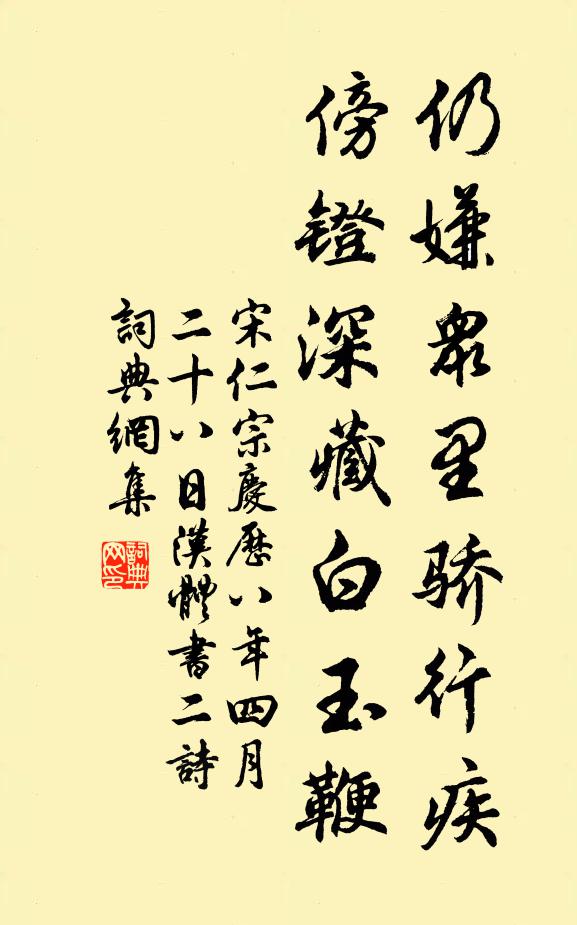 仍嫌眾里骄行疾
傍镫深藏白玉鞭
宋仁宗慶歷八年四月
二十八日漢體書二詩
詞典網集
詞典
网印